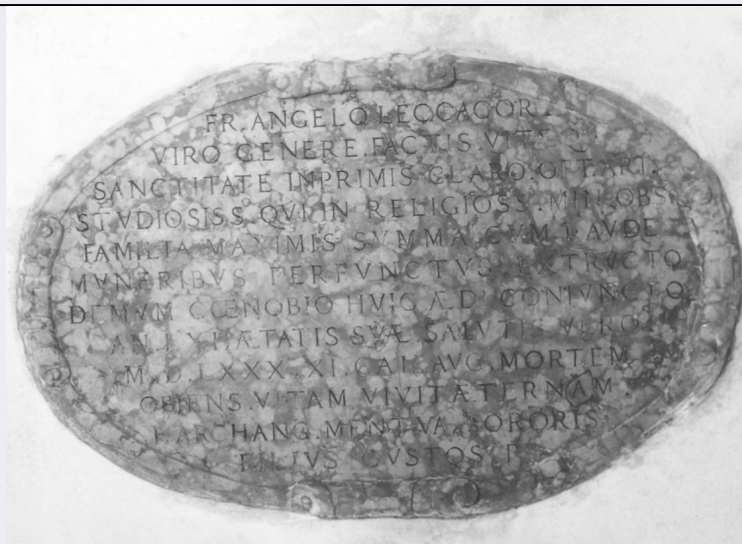 FR. ANGELO LEQCACOR.
VIRO GENERE. FACTIS VITÆ
SANCTITATE INPRIMIS CLARO. OPT. ART.
STVDIOSISS. QVI IN RELIGIOSS. MIN. OBS.
FAMILIA MAXIMIS SVMMA CVM LAVDE
MVNERIBVS PERFVNCTVS EXTRVCTO
DEMVM CŒNOBIO HVIC ÆDI CONIVNCTO
AN. LXII ÆTATIS SVÆ. SALVTIS VERO
M. D. LXXX. XI. CAL. AVG. MORTEM
OBIENS. VITAM VIVIT ÆTERNAM
F. ARCHANG. MENTVA. SORORIS
FILIVS CVSTOS P.